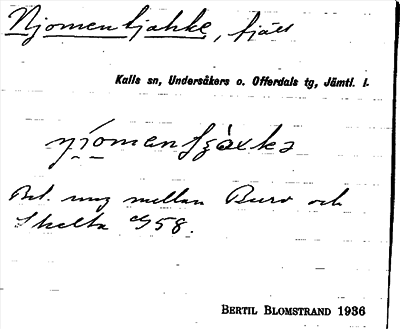 Njomentjahke, fjäll
Kalls sn, Undersåkers o. Offerdals tg, Jämtl. l.
Bel. mellan Buro och
Skelta 58.
BERTIL BLOMSTRAND 1936